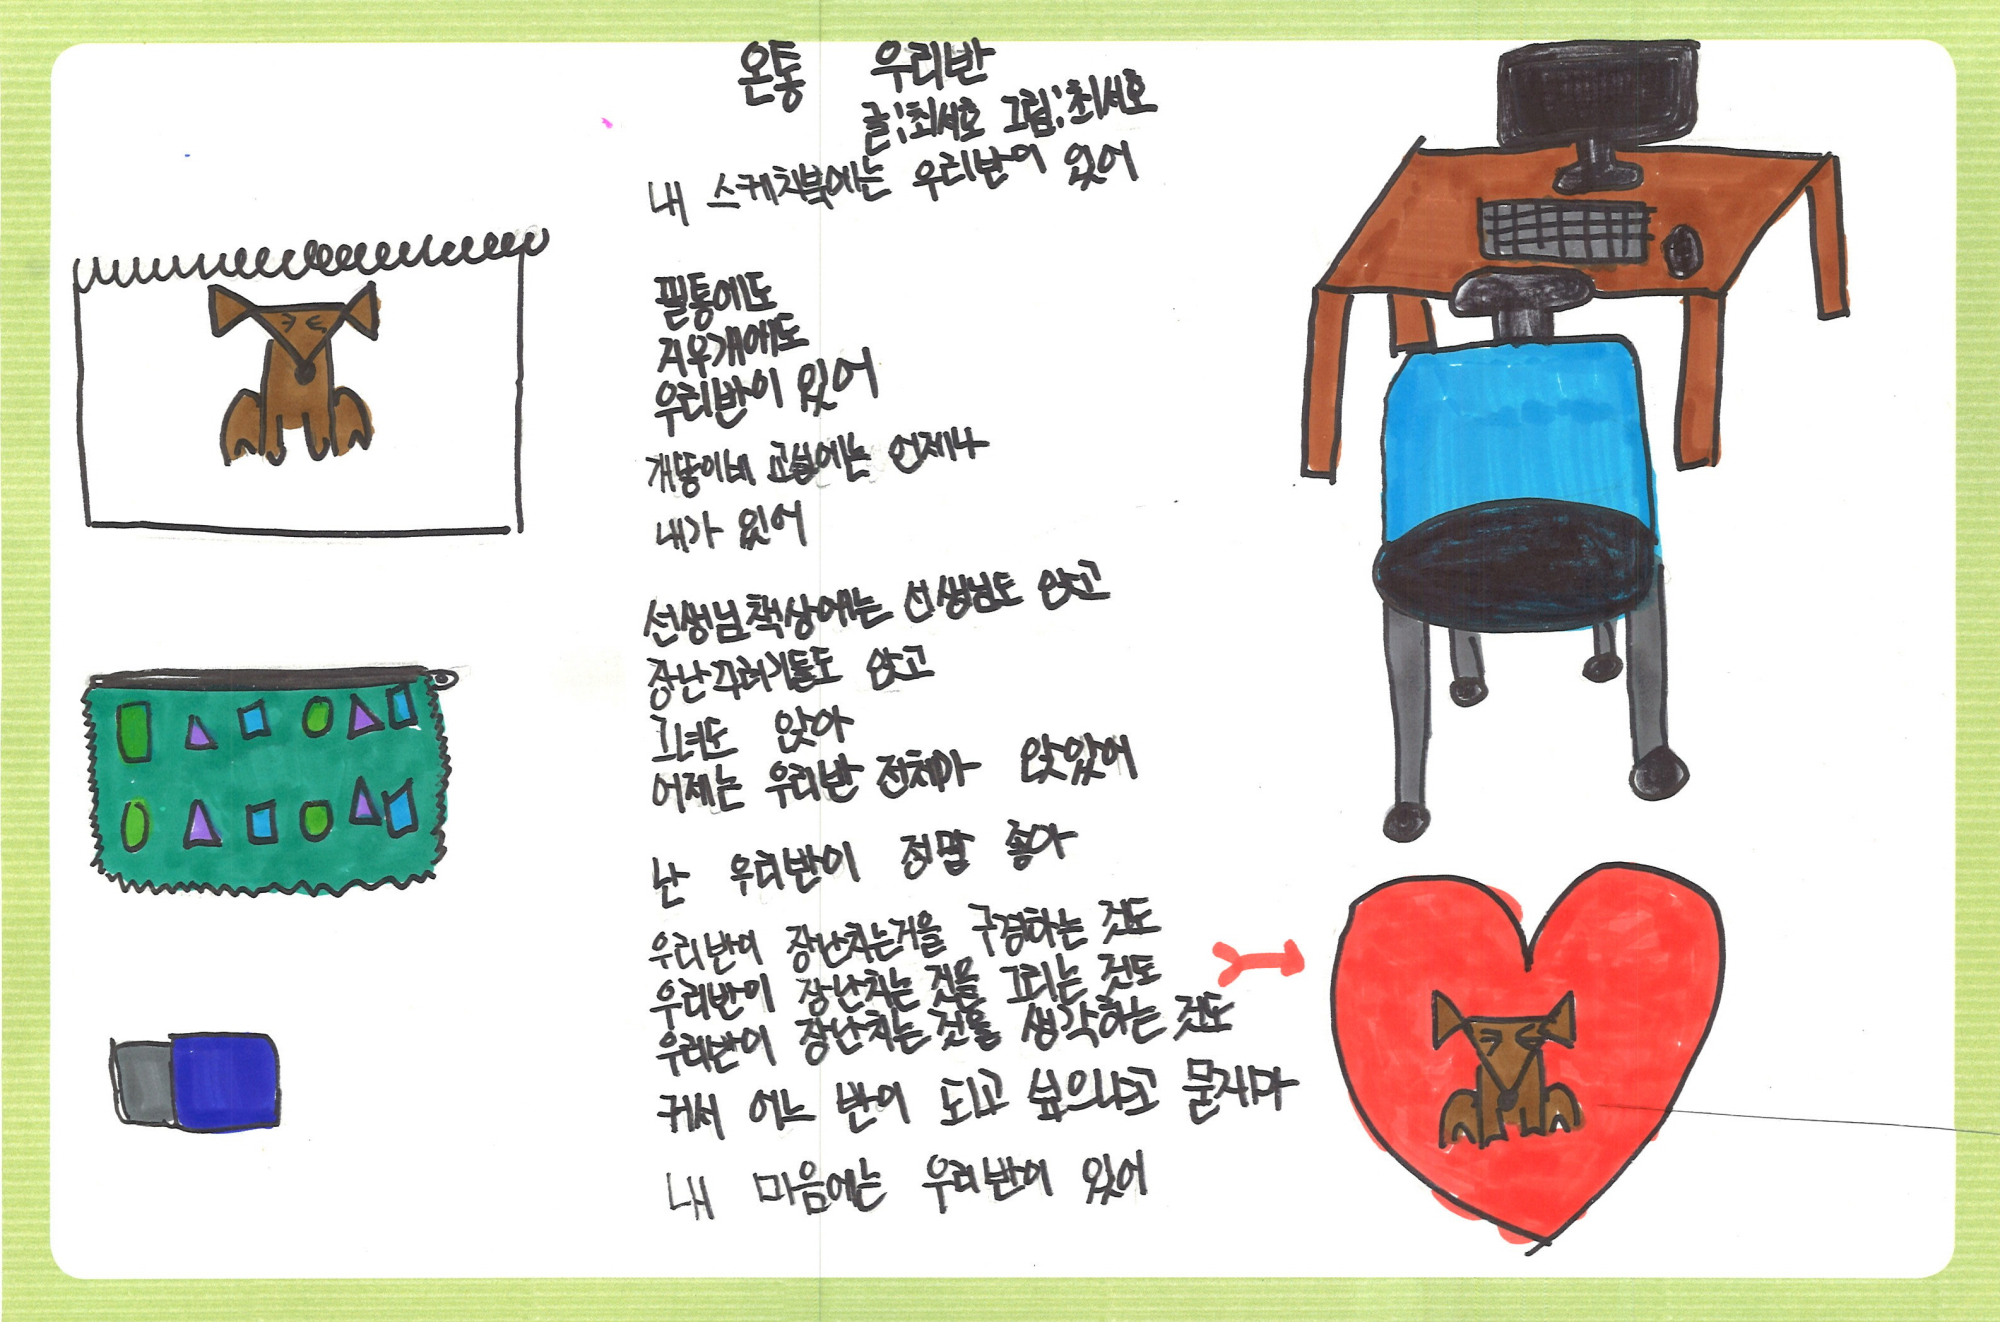 온통 우리반
글;최서호 그림;최서호
내 스케치북에는 우리반이 있어
필통에도
지우개에도
우리반이 있어
개똥이네 교실에는 언제나
내가 있어
선생님책상에는 선생님도 앉고
장난꾸러기들도 앉고
그녀도 앉아
어제는 우리반 전체가 앉았어
난 우리반이 정말 좋아
우리반이 장난치는거을 구경하는 것도
우리반이 장난치는 것을 그리는 것도
우리반이 장난치는 것을 생각하는 것도
커서 어느 반이 되고 싶으냐고 묻지마
내 마음에는 우리반이 있어